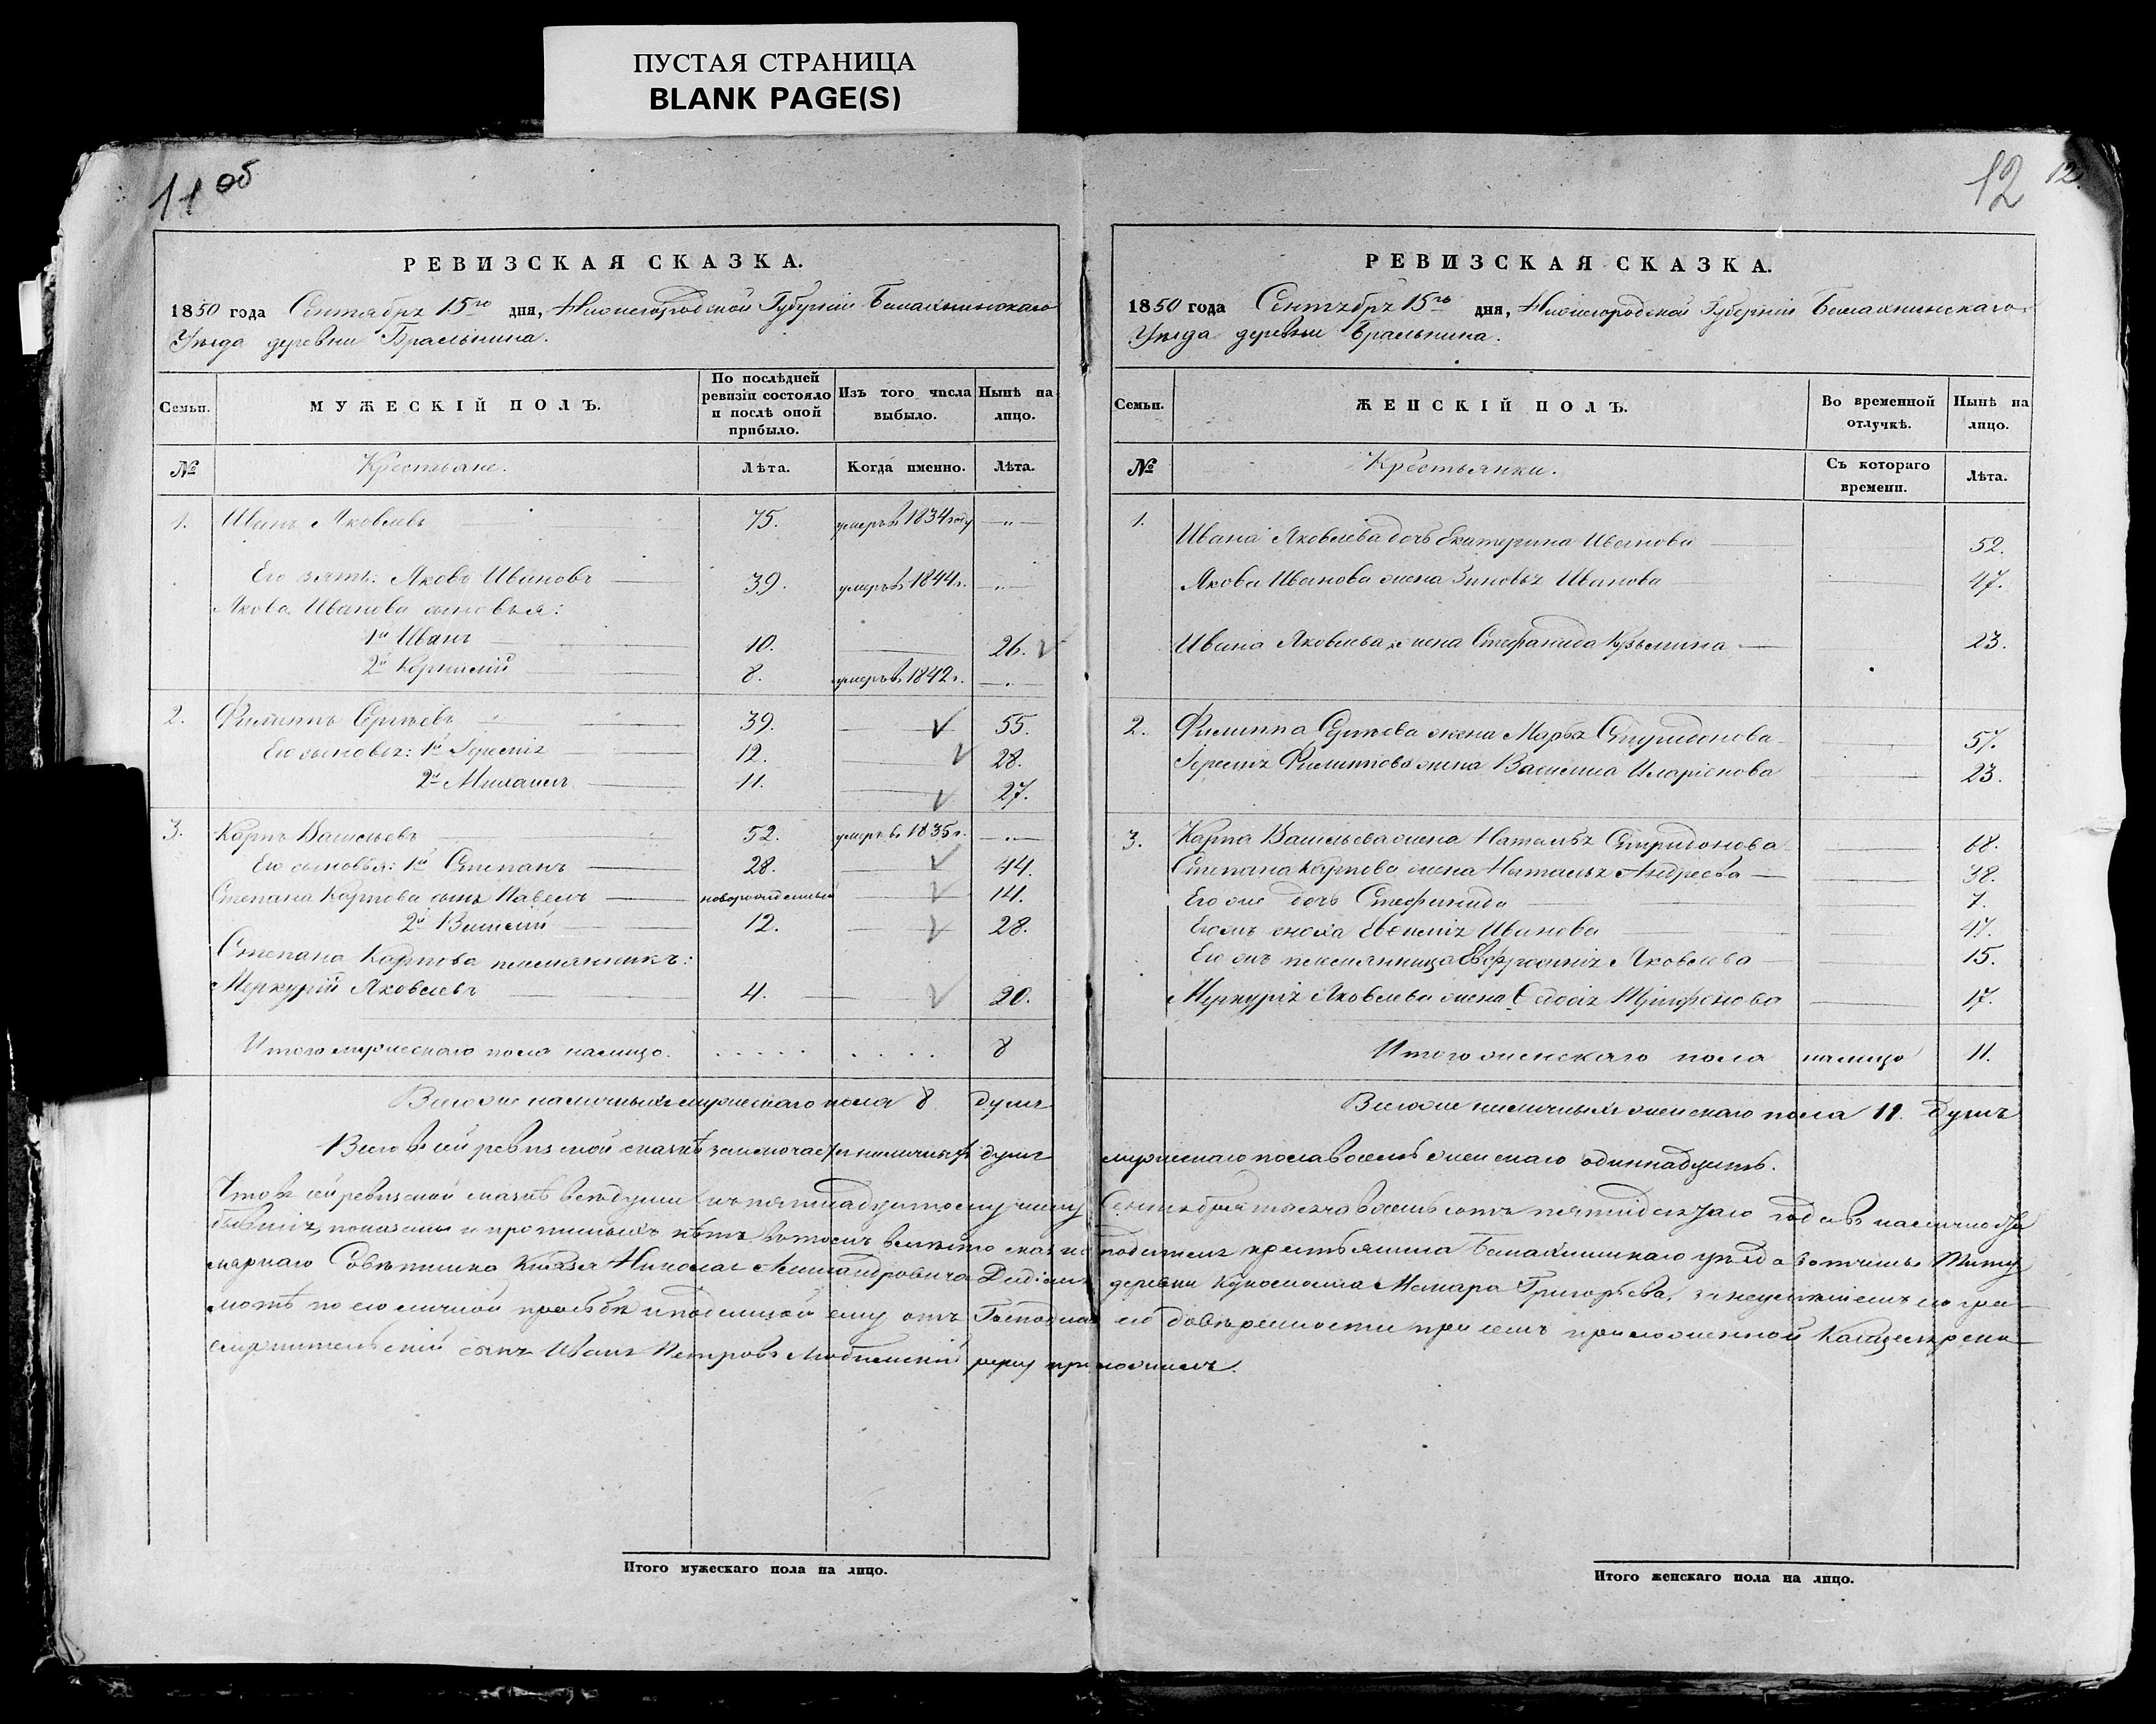 ПУСТАЯ СТРАНИЦА
BLANK PAGE(S)
11 об
РЕВИЗСКАЯ СКАЗКА.
1850 года Сентября 15го дня, Нижегородской Губерніи Балахнинскаго
Уѣзда деревни
Семьи.
МУЖЕСКІЙ ПОЛЪ.
По послѣдней ревизіи состояло и послѣ оной прибыло.
Изъ того числа выбыло.
Нынѣ на лицо.
№
Крестьяне.
Лѣта.
Когда именно.
Лѣта.
1. Иванъ Яковлевъ 75. умеръ въ 1834 году — „ —
Его зять: Яковъ Ивановъ 39. умеръ въ 1844 г. — „ —
Якова Иванова сыновья:
1й Иванъ 10. 26.
2й Корнилій 8. умеръ въ 1842 г. — „ —
2. Филиппъ Сергѣевъ 39. 55.
Его сыновья: 1й 12. 28.
2й Михаилъ 11. 27.
3. Карпъ Васильевъ 52. умеръ въ 1835 г. — „ —
Его сыновья: 1й Степанъ 28. 44.
Степана Карпова сынъ Павелъ новорожденный 14.
2й Василій 12. 28.
Степана Карпова племянникъ:
Меркурій Яковлевъ 4. 20.
Итого мужескаго пола налицо. . . . . . . . . . 8
Всего же наличныхъ мужескаго пола 8 душъ
Всего въ сей ревизской сказкѣ заключается наличныхъ душъ
Что въ сей ревизской сказкѣ всѣ души къ пятнадцатому числу
бывшія, показаны и прописныхъ нѣтъ въ томъ вмѣсто
Совѣтника Князя Николая Александровича
по его личной прозьбѣ и подлицой ему отъ
сынъ Иванъ Петровъ руку приложилъ.
12 12.
РЕВИЗСКАЯ СКАЗКА.
1850 года Сентября 15го дня, Нижегородской Губерніи Балахнинскаго
Уѣзда деревни
Семьи.
ЖЕНСКІЙ ПОЛЪ.
Во временной отлучкѣ.
Нынѣ на лицо.
№
Крестьянки.
Съ котораго времени.
Лѣта.
1. Ивана Яковлева дочь Екатерина Иванова 52.
Якова Иванова жена Зиновья Иванова 47.
Ивана Яковлева жена Стефанида Кузьмина 23.
2. Филиппа Сергѣева жена Марья Спиридонова 57.
Филиппова жена Василиса Иларіонова 23.
3. Карпа Васильева жена Наталья Спиридонова 68.
Степана Карпова жена Наталья Андреева 38.
Его же дочь Стефанида 7.
сноха Иванова 47.
племянница Евфросинія Яковлева 15.
Меркурія Яковлева жена Федосья 17.
Итого женскаго пола налицо 11.
Всего же наличныхъ женскаго пола 11. душъ
мужескаго пола восемь женскаго одиннадцать.
Сентября тысяча восемь сотъ пятидесятаго года въ наличности
крестьянина Балахнинскаго уѣзда вотчины
деревни Макара Григорьева, за неумѣніемъ его
его довѣренности при семъ приложенной